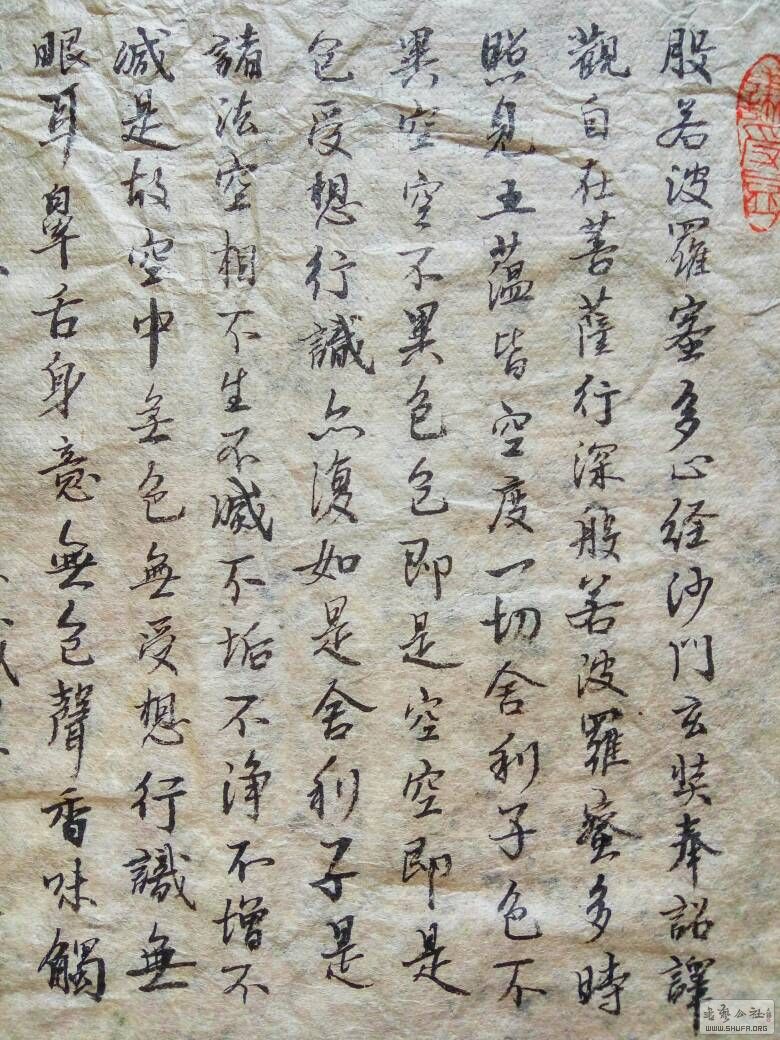 般若波羅蜜多心经沙門玄奘奉詔譯
觀自在菩薩行深般若波羅蜜多時
照見五蕴皆空度一切舍利子色不
異空空不異色色即是空空即是
色受想行識亦復如是舍利子是
諸法空相不生不滅不垢不净不增不
減是故空中無色無受想行識無
眼耳鼻舌身意無色聲香味觸
WWW.SHUFA.ORG